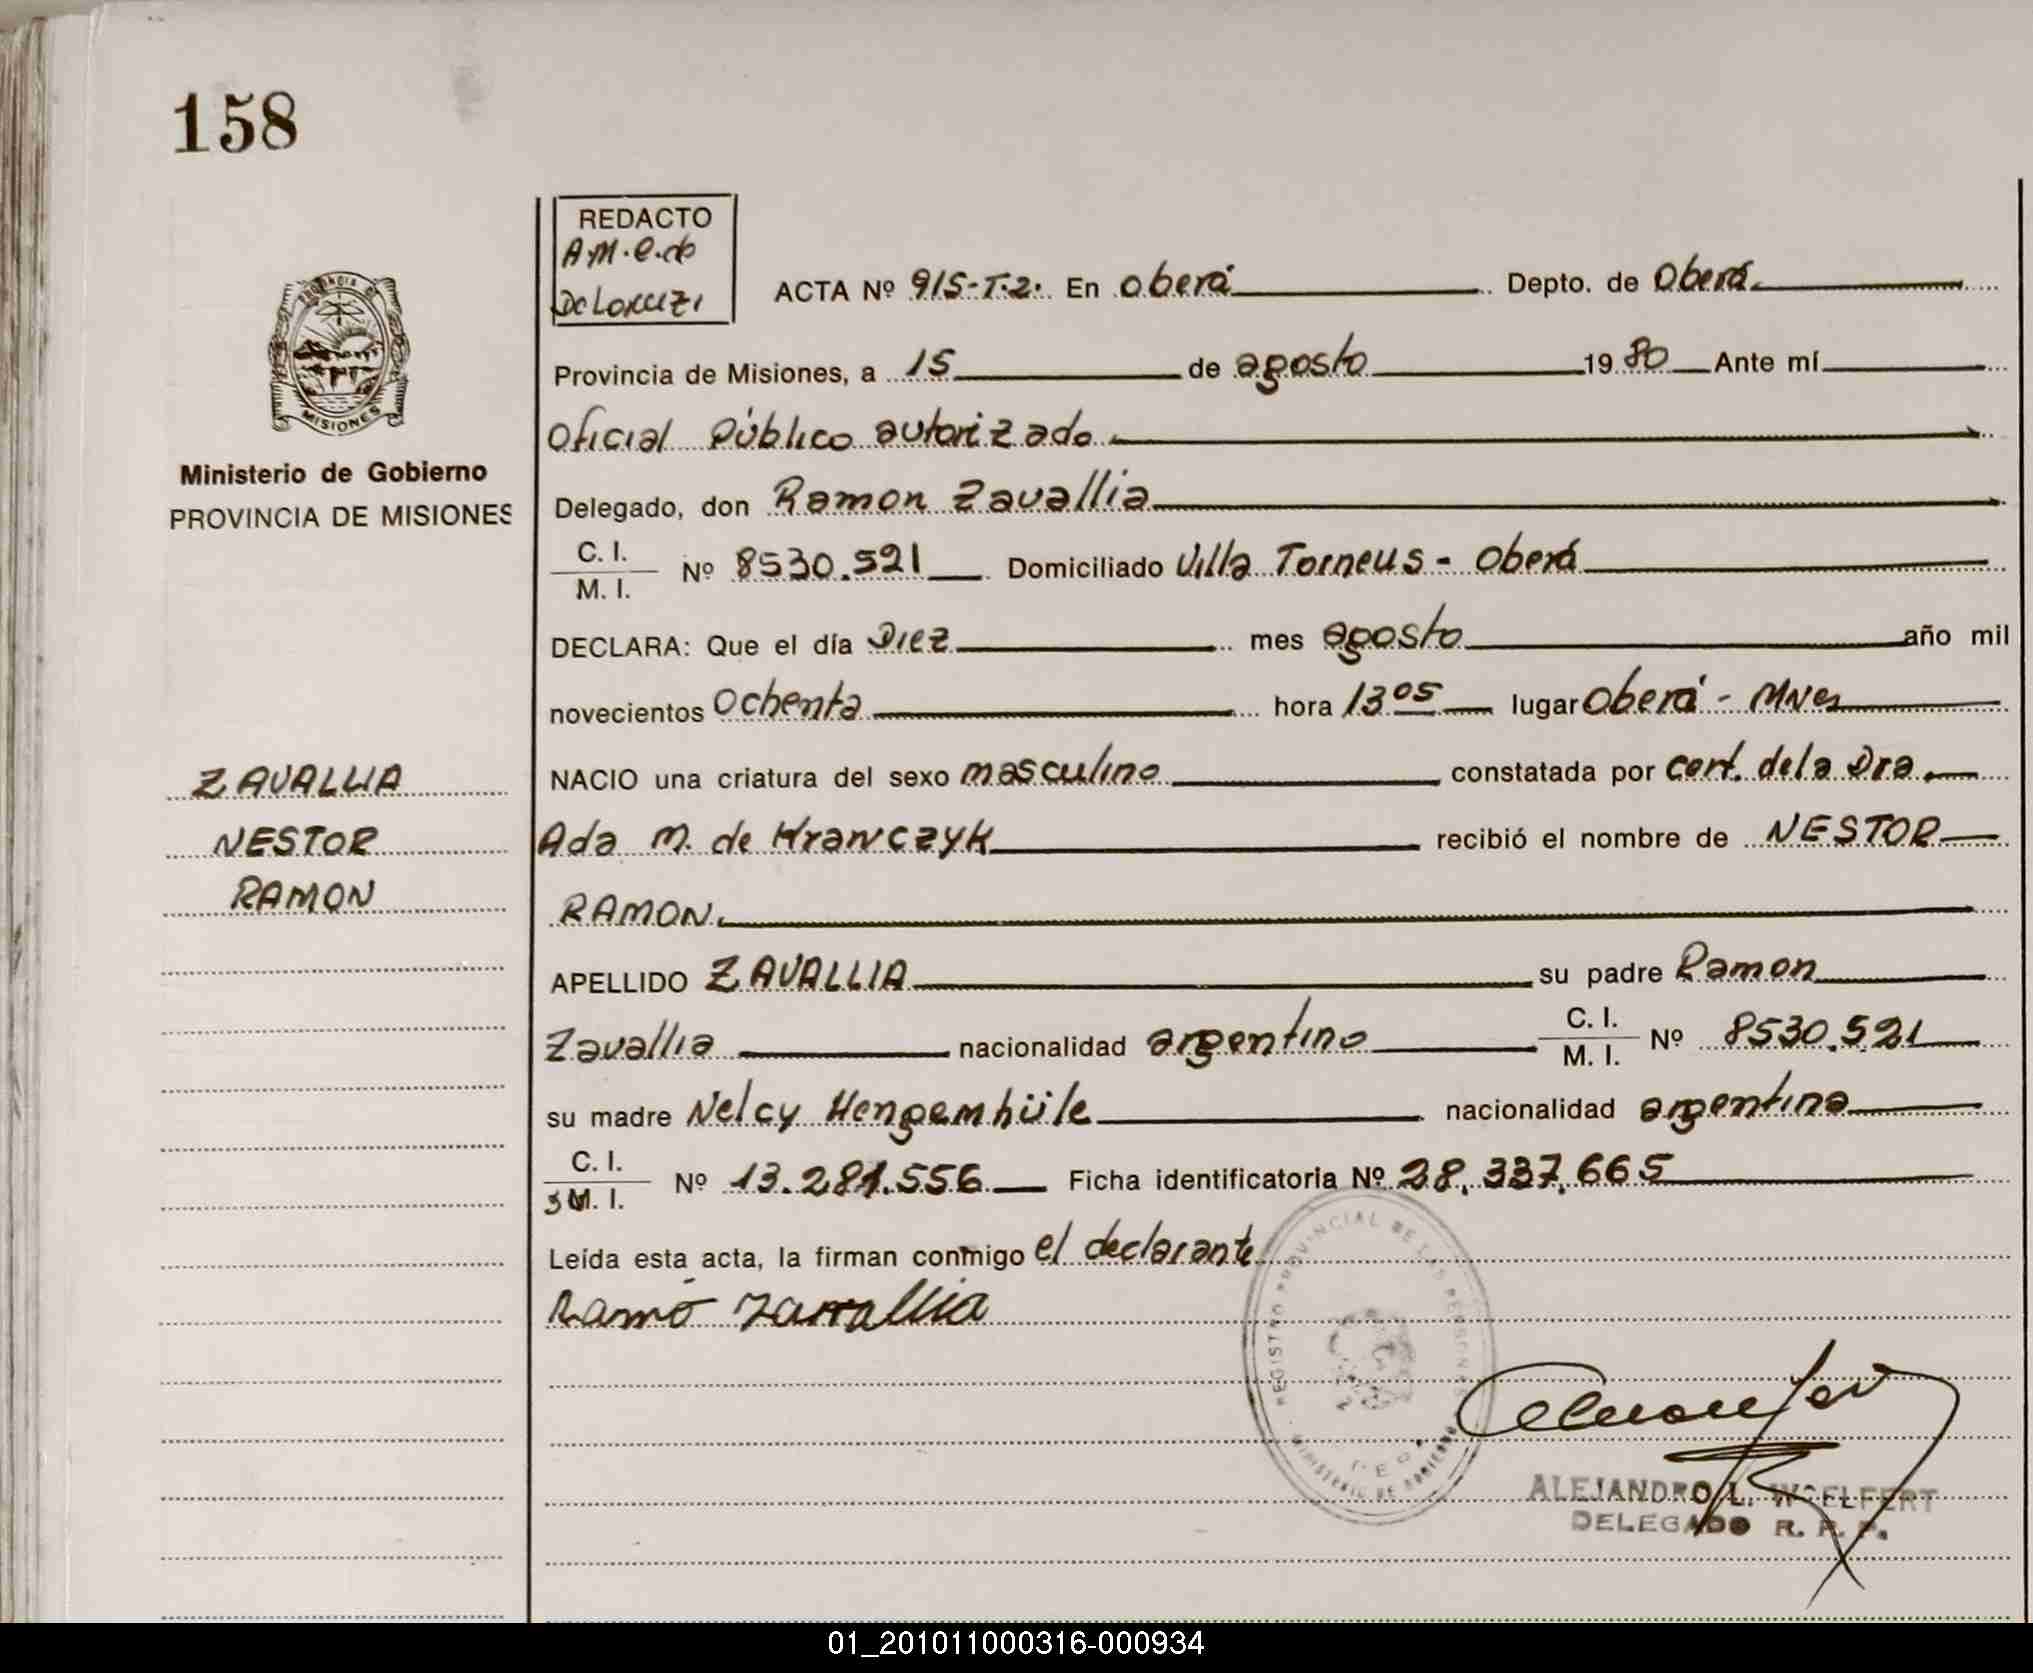 158
REDACTO
A.M.C.de
De Loxuzi
PROVINCIA DE
MISIONES
Ministerio de Gobierno
PROVINCIA DE MISIONES
ACTA Nº 915-T.2. En Oberá Depto. de Oberá
Provincia de Misiones, a 15 de agosto 1980 Ante mí
Oficial Público autorizado
Delegado, don Ramon Zavallia
C. I.
M. I. Nº 8530.521 Domiciliado Villa Torneus - Oberá
DECLARA: Que el día Diez mes agosto año mil
novecientos Ochenta hora 13 05 lugar Oberá - Mnes
ZAVALLIA
NESTOR
RAMON
NACIO una criatura del sexo masculino constatada por cert. de la Dra.
Ada M. de Hrawczyk recibió el nombre de NESTOR
RAMON.
APELLIDO ZAVALLIA su padre Ramon
Zavallia nacionalidad argentino C. I. M. I. Nº 8530.521
su madre Nelcy Hengemhüle nacionalidad argentina
C. I.
M. I. Nº 13.281.556 Ficha identificatoria Nº 28.337.665
Leída esta acta, la firman conmigo el declarante
Ramó Zavallia
REGISTRO PROVINCIAL DE LAS PERSONAS
MINISTERIO DE GOBIERNO
ALEJANDRO L. WOELFERT
DELEGADO R. P. P.
01_201011000316-000934